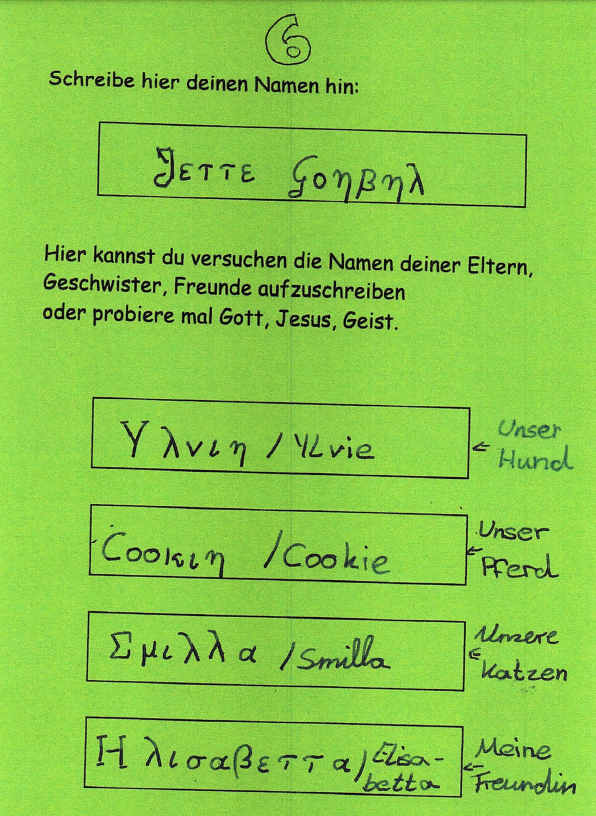 6
Schreibe hier deinen Namen hin:
Jεττε Gοηβηλ
Hier kannst du versuchen die Namen deiner Eltern,
Geschwister, Freunde aufzuschreiben
oder probiere mal Gott, Jesus, Geist.
Υλνιη / YLvie
← Unser
Hund
Cοοκιη / Cookie
← Unser
Pferd
Σμιλλα / Smilla
← Unsere
Katzen
Ηλισαβεττα / Elisa-
betta
← Meine
Freundin